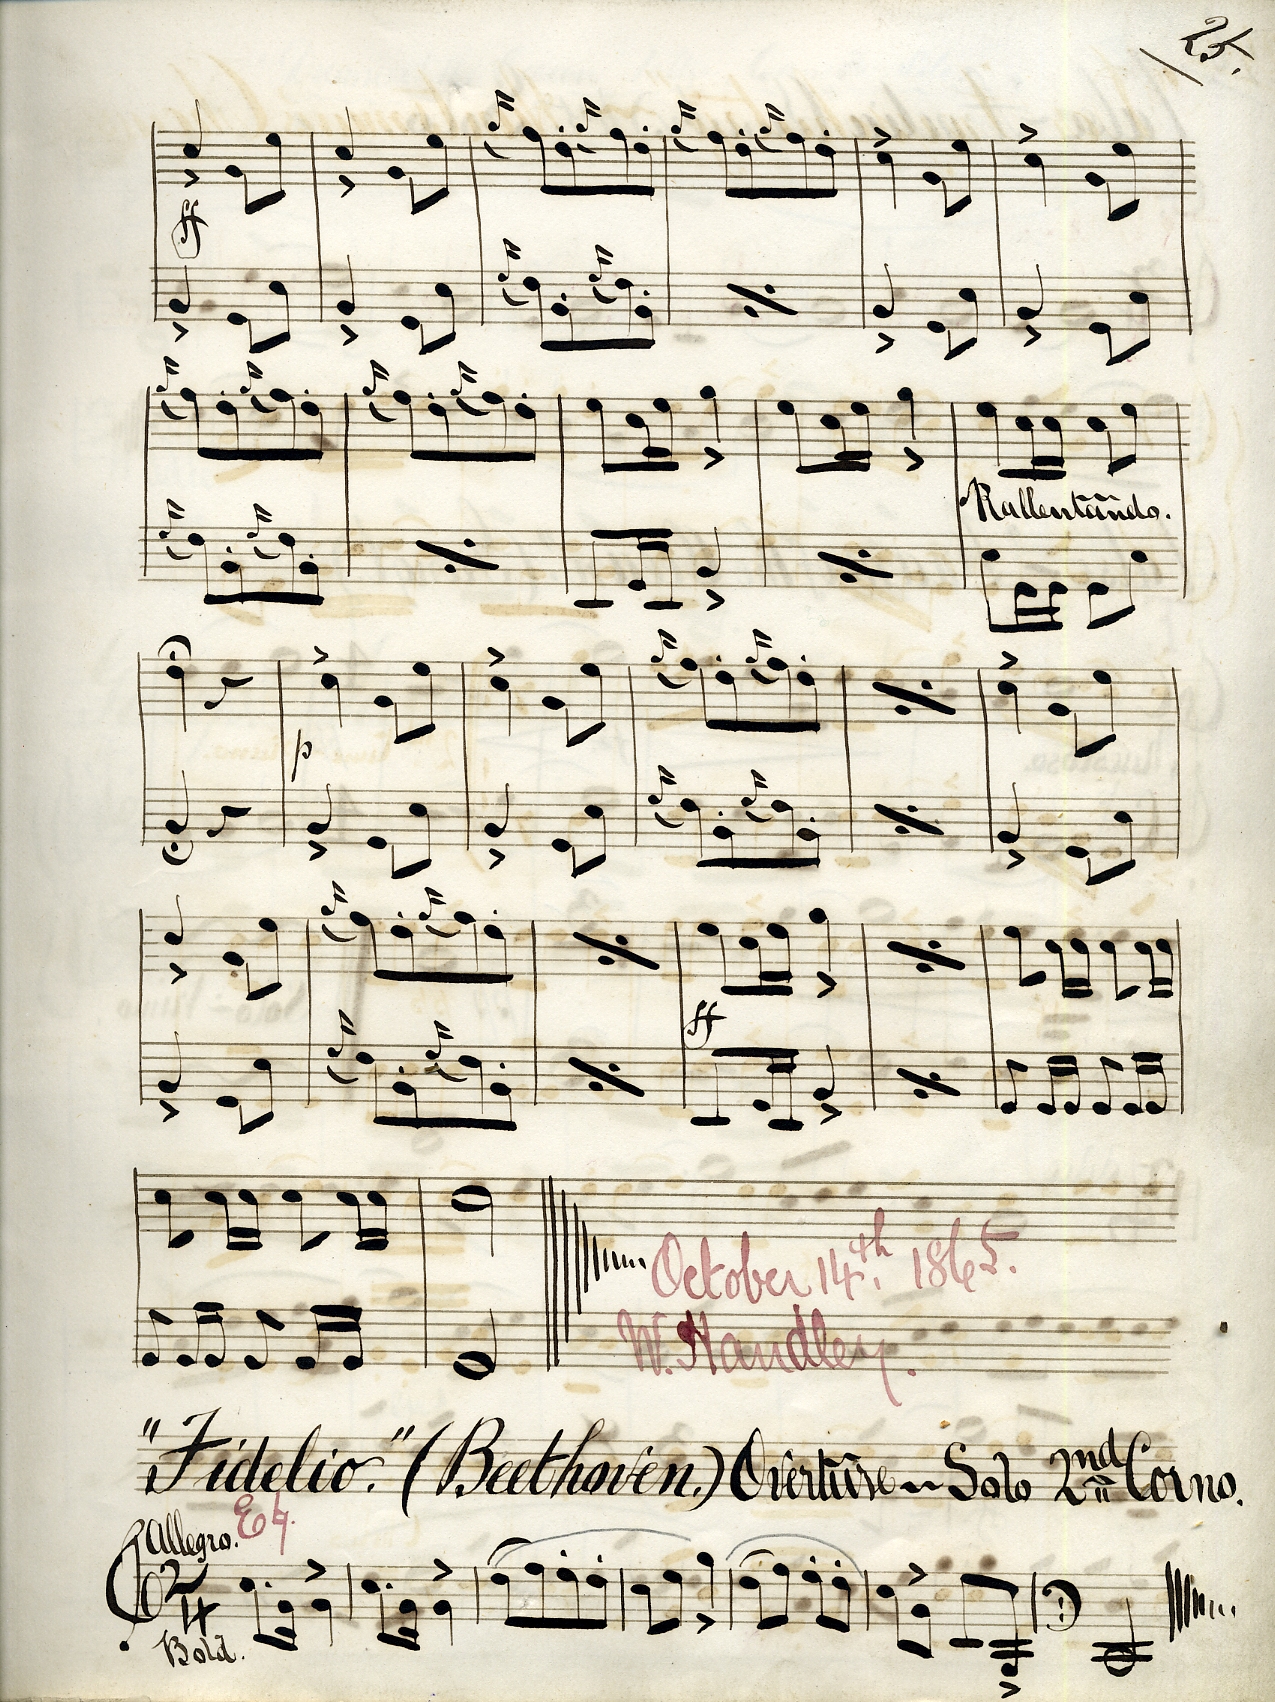 25.
ff
Rallentando.
p
ff
October 14th. 1865.
W. Handley.
"Fidelio." (Beethoven.) Overture ~ Solo 2nd Corno.
Allegro. E♮.
2/4
Bold.